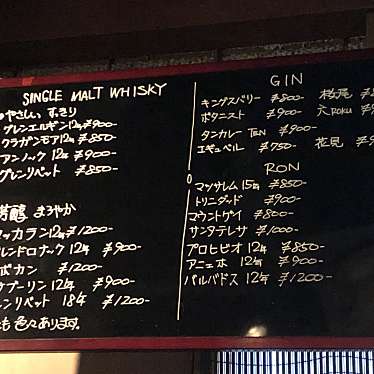 SINGLE MALT WHISKY
やさしい すっきり
グレンエルギン12年 ¥900-
クラガンモア12年 ¥850-
アンノック 12年 ¥900-
グレンリベット ¥850-
芳醇 まろやか
マッカラン12年 ¥1200-
レンドロナック 12年 ¥900-
ボカン ¥1200-
12年 ¥900-
レンリベット 18年 ¥1200-
も 色々あります。
GIN
キングスバリー ¥800- 桜尾
ボタニスト ¥900- 六 ROKU
タンカレー TEN ¥900-
エギュベル ¥750- 花見
RON
マッサレム 15年 ¥850-
トリニダッド ¥900-
マウントゲイ ¥800-
サンタテレサ ¥1000-
プロヒビオ 12年 ¥850-
アニェホ 12年 ¥900-
バルバドス 12年 ¥1200-